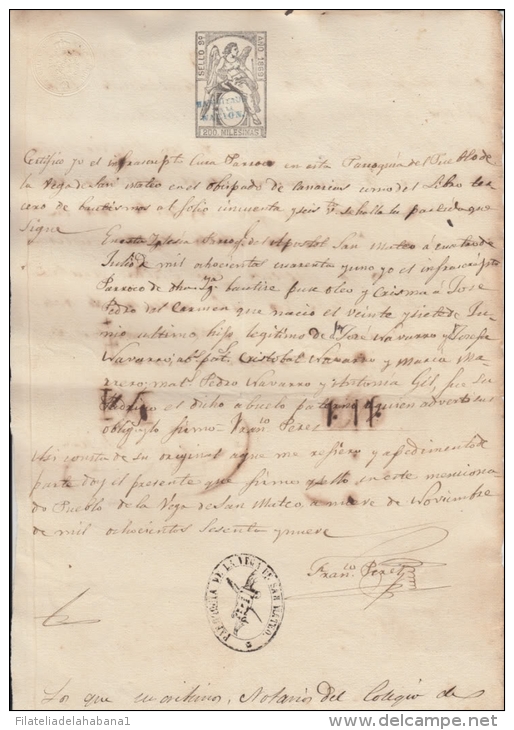 SELLO 9º AÑO 1869
HABILITADO
POR LA
NACION.
200 MILESIMAS
Certifico yo el infrascripto Cura Parroco en esta Parroquia del Pueblo de
la Vega de San Mateo en el obispado de Canarias como del libro ter
cero de bautismos al folio cincuenta y seis se halla la partida que
sigue
En esta Iglesia Parroql. del Apostol San Mateo á cuatro de
Julio de mil ochocientos cuarenta y uno yo el infrascripto
Parroco de dha Yga. bautize puse oleo y Crisma á José
Pedro del Carmen que nacio el veinte y siete de Ju
nio ultimo hijo legitimo de José Navarro y Josefa
Navarro; ab. pat. Cristobal Navarro y Maria Ma
rrero: mat. Pedro Navarro y Antonia Gil, fue su
Padrino el dicho abuelo paterno a quien adverti sus
obligs. y lo firmo Franco. Peres
Asi consta de su original a que me refiero y a pedimento de
parte doy el presente que firmo y sello en este menciona
do Pueblo de la Vega de San Mateo, a nueve de Noviembre
de mil ochocientos sesenta y nueve
Franco. Perez
PARROQUIA DE LA VEGA DE SAN MATEO.
Los que suscribimos, Notarios del Colegio de
© Filateliadelahabana1
http://www.delcampe.net